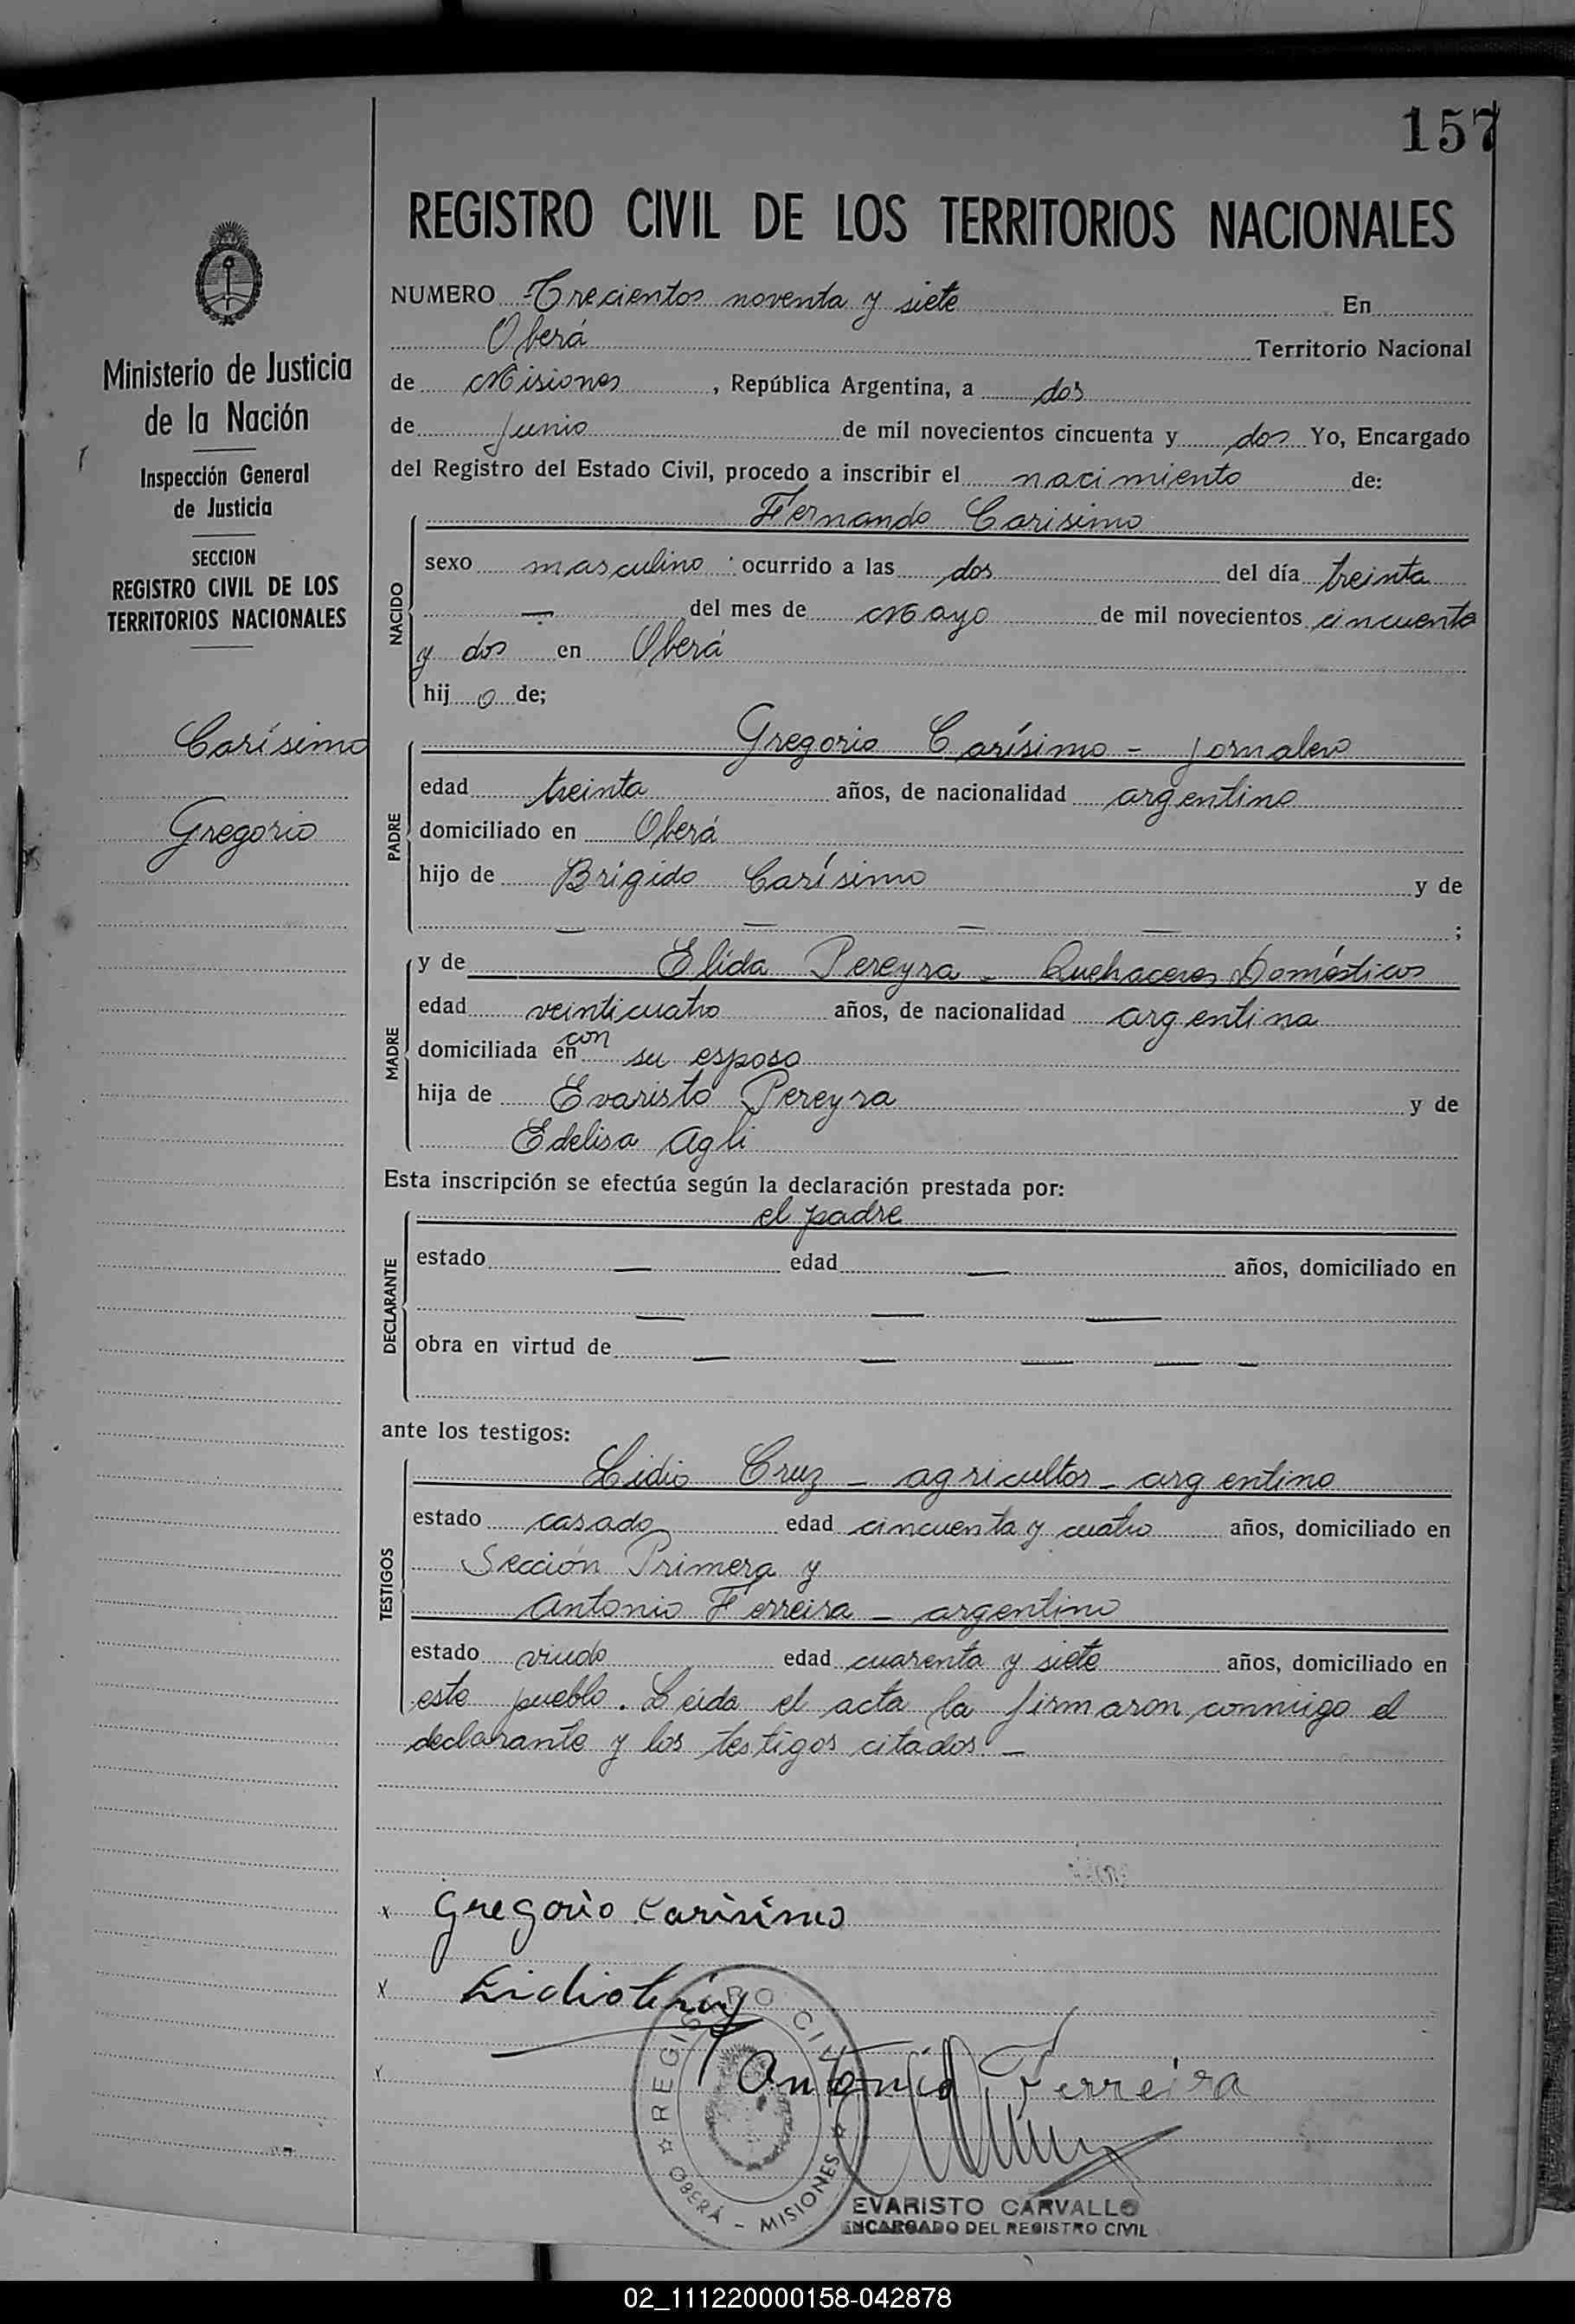 157
REGISTRO CIVIL DE LOS TERRITORIOS NACIONALES
Ministerio de Justicia
de la Nación
Inspección General
de Justicia
SECCION
REGISTRO CIVIL DE LOS
TERRITORIOS NACIONALES
Carísimo
Gregorio
NUMERO Trecientos noventa y siete En
Oberá Territorio Nacional
de Misiones, República Argentina, a dos
de Junio de mil novecientos cincuenta y dos Yo, Encargado
del Registro del Estado Civil, procedo a inscribir el nacimiento de:
NACIDO
Fernando Carisimo
sexo masculino ocurrido a las dos del día treinta
— del mes de Mayo de mil novecientos cincuenta
y dos en Oberá
hij o de;
PADRE
Gregorio Carísimo - jornalero
edad treinta años, de nacionalidad argentino
domiciliado en Oberá
hijo de Brígido Carísimo y de
— — — — ;
MADRE
y de Elida Pereyra - Quehaceres Domésticos
edad veinticuatro años, de nacionalidad argentina
domiciliada en con su esposo
hija de Evaristo Pereyra y de
Edelisa Agli
Esta inscripción se efectúa según la declaración prestada por:
DECLARANTE
el padre
estado — edad — años, domiciliado en
— — —
obra en virtud de — — — — —
ante los testigos:
TESTIGOS
Lidio Cruz - agricultor - argentino
estado casado edad cincuenta y cuatro años, domiciliado en
Sección Primera y
Antonio Ferreira - argentino
estado viudo edad cuarenta y siete años, domiciliado en
este pueblo. Leida el acta la firmaron conmigo el
declarante y los testigos citados. -
x Gregorio Carisimo
x Lidio Cruz
x Antonio Ferreira
REGISTRO CIVIL
OBERÁ - MISIONES
EVARISTO CARVALLO
ENCARGADO DEL REGISTRO CIVIL
02_111220000158-042878